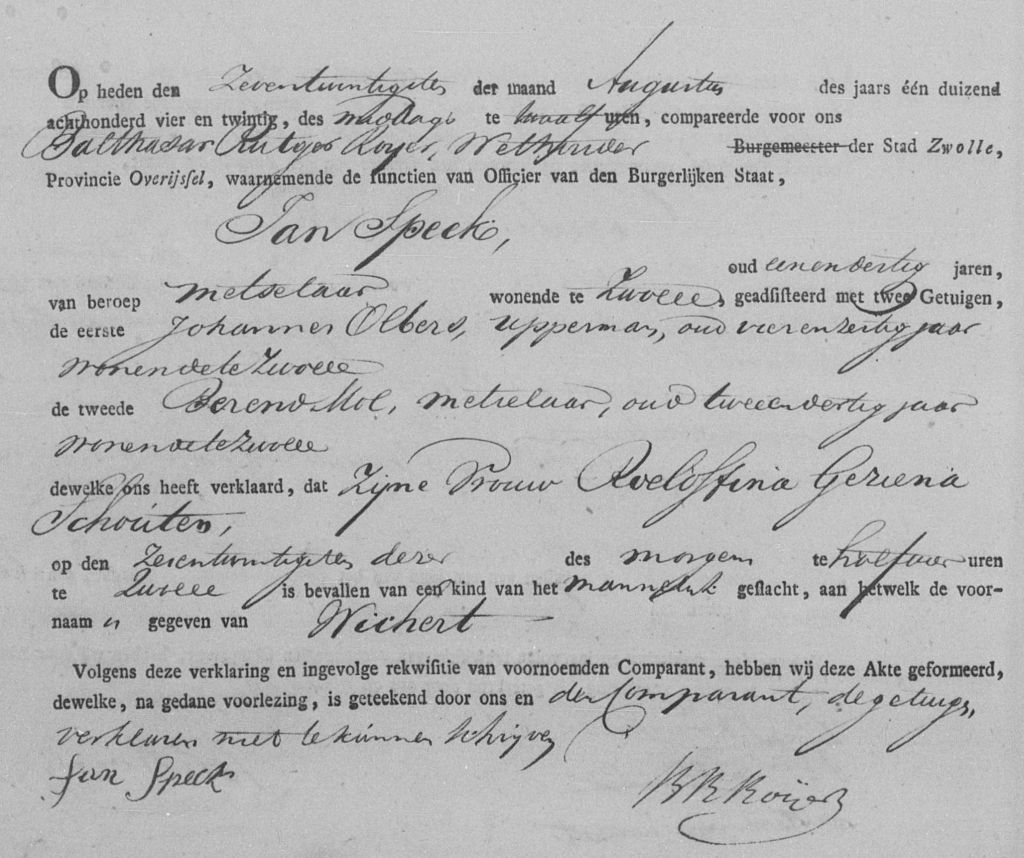 Op heden den Zeventwintigsten der maand Augustus des jaars één duizend
achthonderd vier en twintig, des middags te twaalf uren, compareerde voor ons
Balthasar Rutger Royer, Wethouder Burgemeester der Stad Zwolle,
Provincie Overijssel, waarnemende de functien van Officier van den Burgerlijken Staat,
Jan Speck,
oud eenendertig jaren,
van beroep metselaar wonende te Zwolle, geadsisteerd met twee Getuigen,
de eerste Johannes Olbers, opperman, oud vierenzestig jaar
wonende te Zwolle
de tweede Berend Mol, metselaar, oud tweeendertig jaar
wonende te Zwolle
dewelke ons heeft verklaard, dat Zijne Vrouw Roeloffina Geziena
Schouten,
op den Zeventwintigsten dezer des morgens te half vier uren
te Zwolle is bevallen van een kind van het mannelijk geslacht, aan hetwelk de voor-
naam is gegeven van Wichert
Volgens deze verklaring en ingevolge rekwisitie van voornoemden Comparant, hebben wij deze Akte geformeerd,
dewelke, na gedane voorlezing, is geteekend door ons en den Comparant, de getuigen
verklaren niet te kunnen schrijven
Jan Speck
B R Roijer